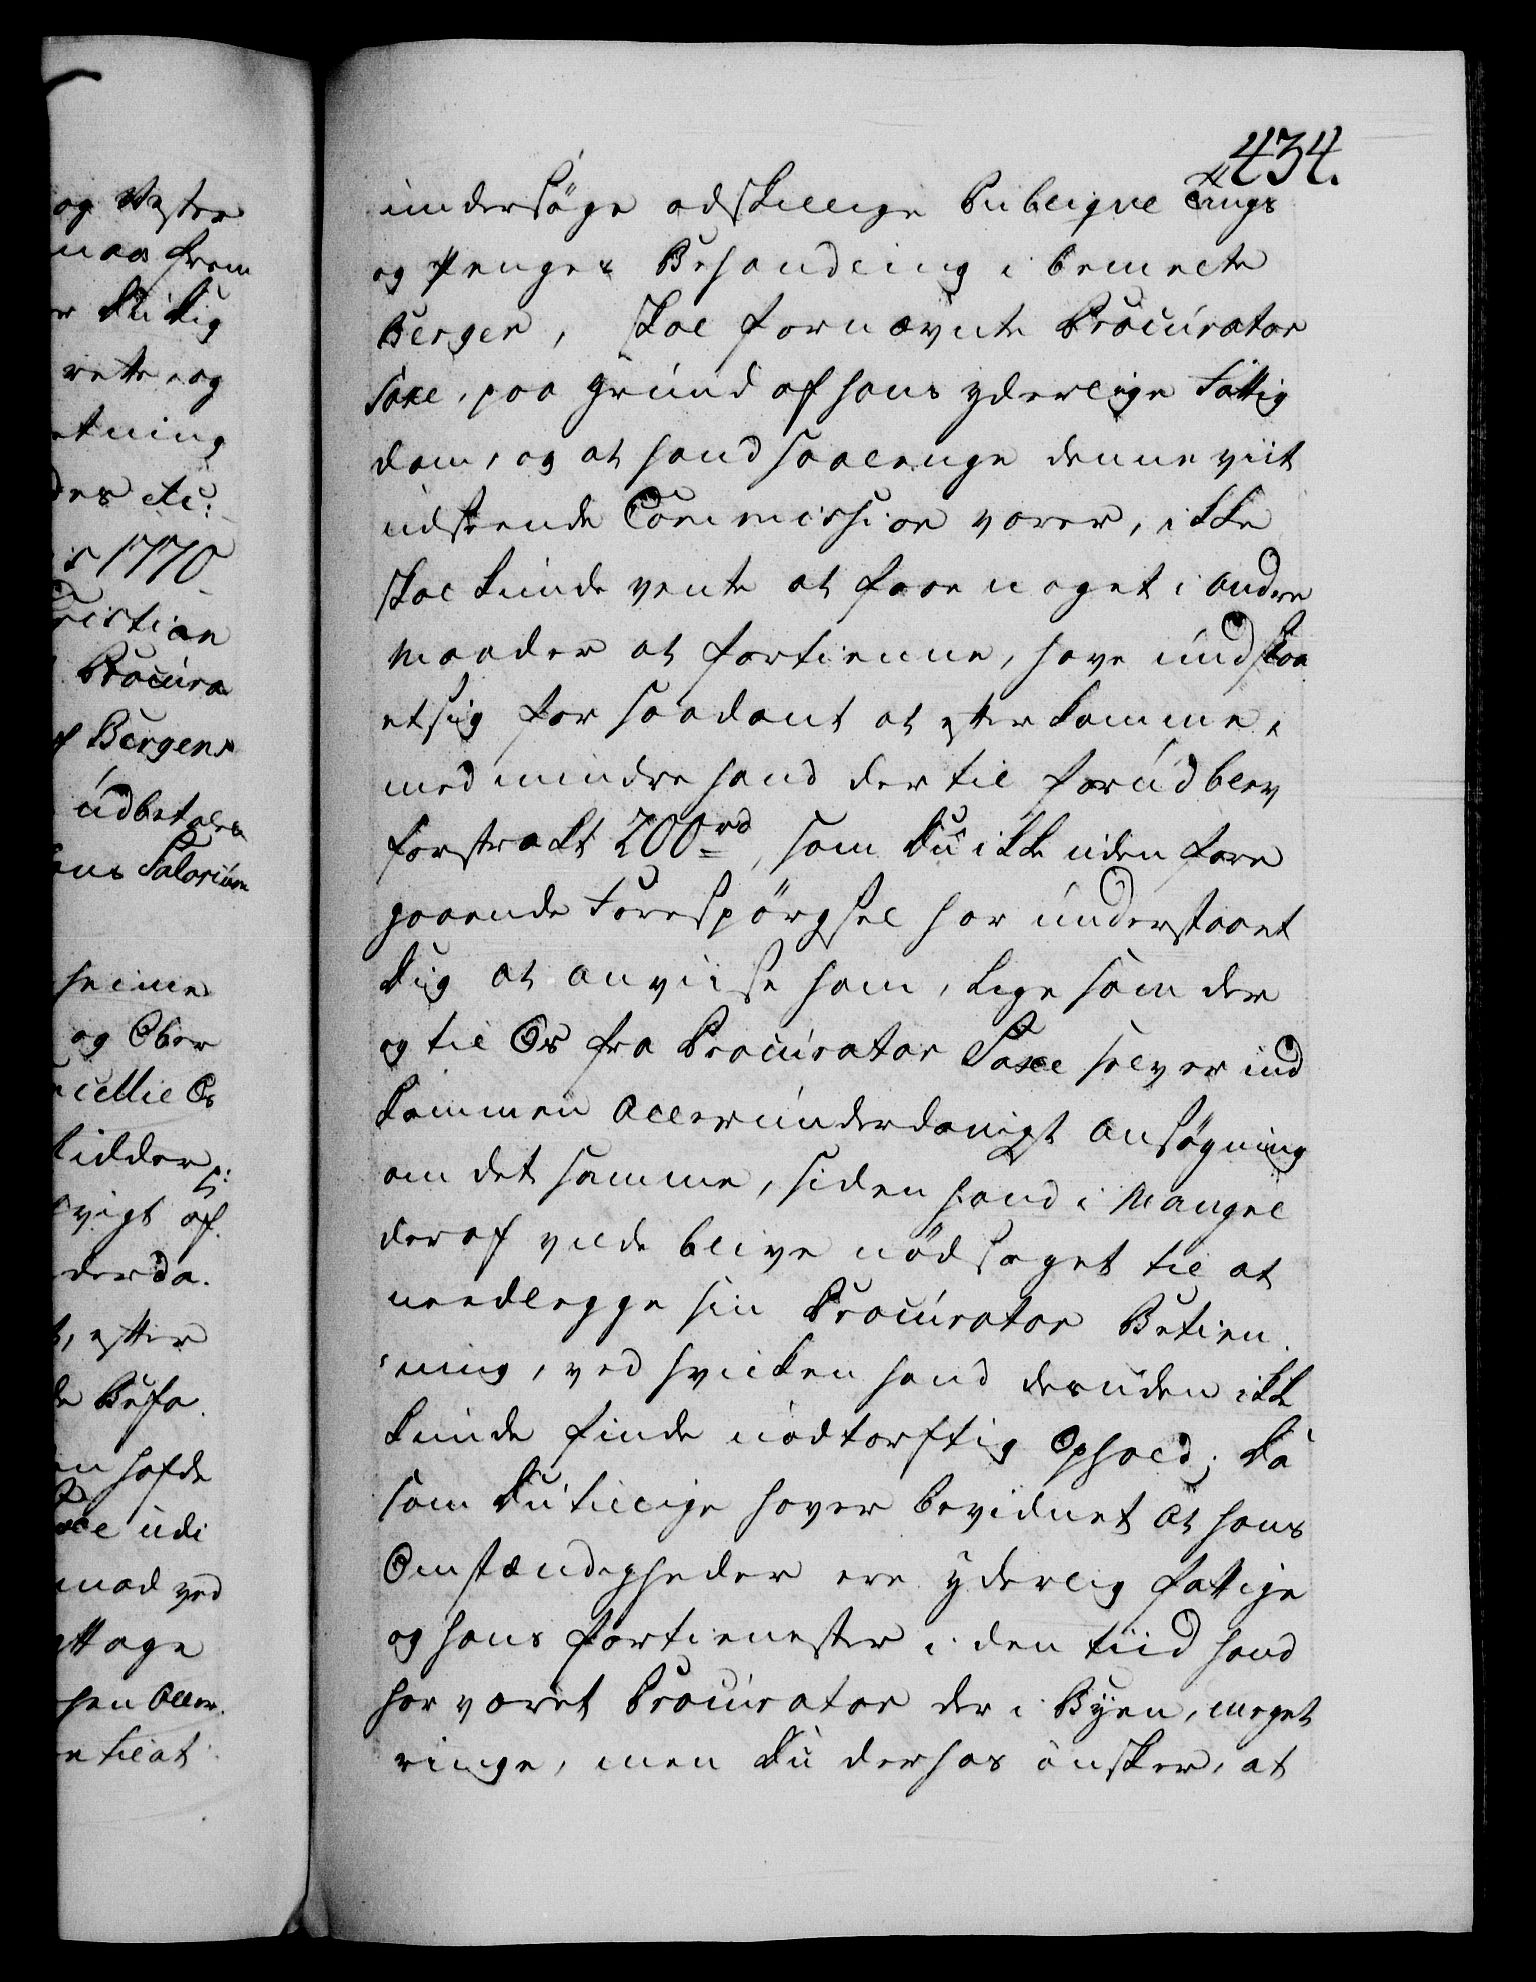 434.
undersøge adskillige Publiqve Tings
og Penges Behandling i bemelte
Bergen, skal fornævnte Procurator
Saxe, paa Grund af hans yderlige Fattig
dom, og at hand saalenge denne viit
udseende Commission varer, ikke
skal kunde vente at faae noget i andre
Maader at fortienne, have undslaa
et sig for saadant at efterkomme,
med mindre hand dertil forud blev
forstrakt 200 rd, som Du ikke uden fore
gaaende Forespørgsel har understaaet
Dig at anviise ham, lige som der
og til Os fra Procurator Saxe selv er ind
kommen allerunderdanigst Ansøgning
om det samme, siden hand i Mangel
deraf vilde blive nødsaget til at
needlegge sin Procurator Betien
ning, ved hvilken hand desuden ikke
kunde finde nødtørftig Ophold; Da
som Du tillige haver bevidnet at hans
Omstændigheder ere yderlig fattige
og hans Fortienester i den tiid hand
har været Procurator der i Byen, meget
ringe, men Du derhos ønsker, at
og Vester
maa frem
er Du Dig
rette og
etning
des etc:
is 1770
Christian
Procura
af Bergens
udbetales
hans Salarium
heime
og Ober
Os
Kidder
vigt af
derda.
efter
de Befa
en hafde
Saxe udi
mod ved
ttage
hen Aller
e til at